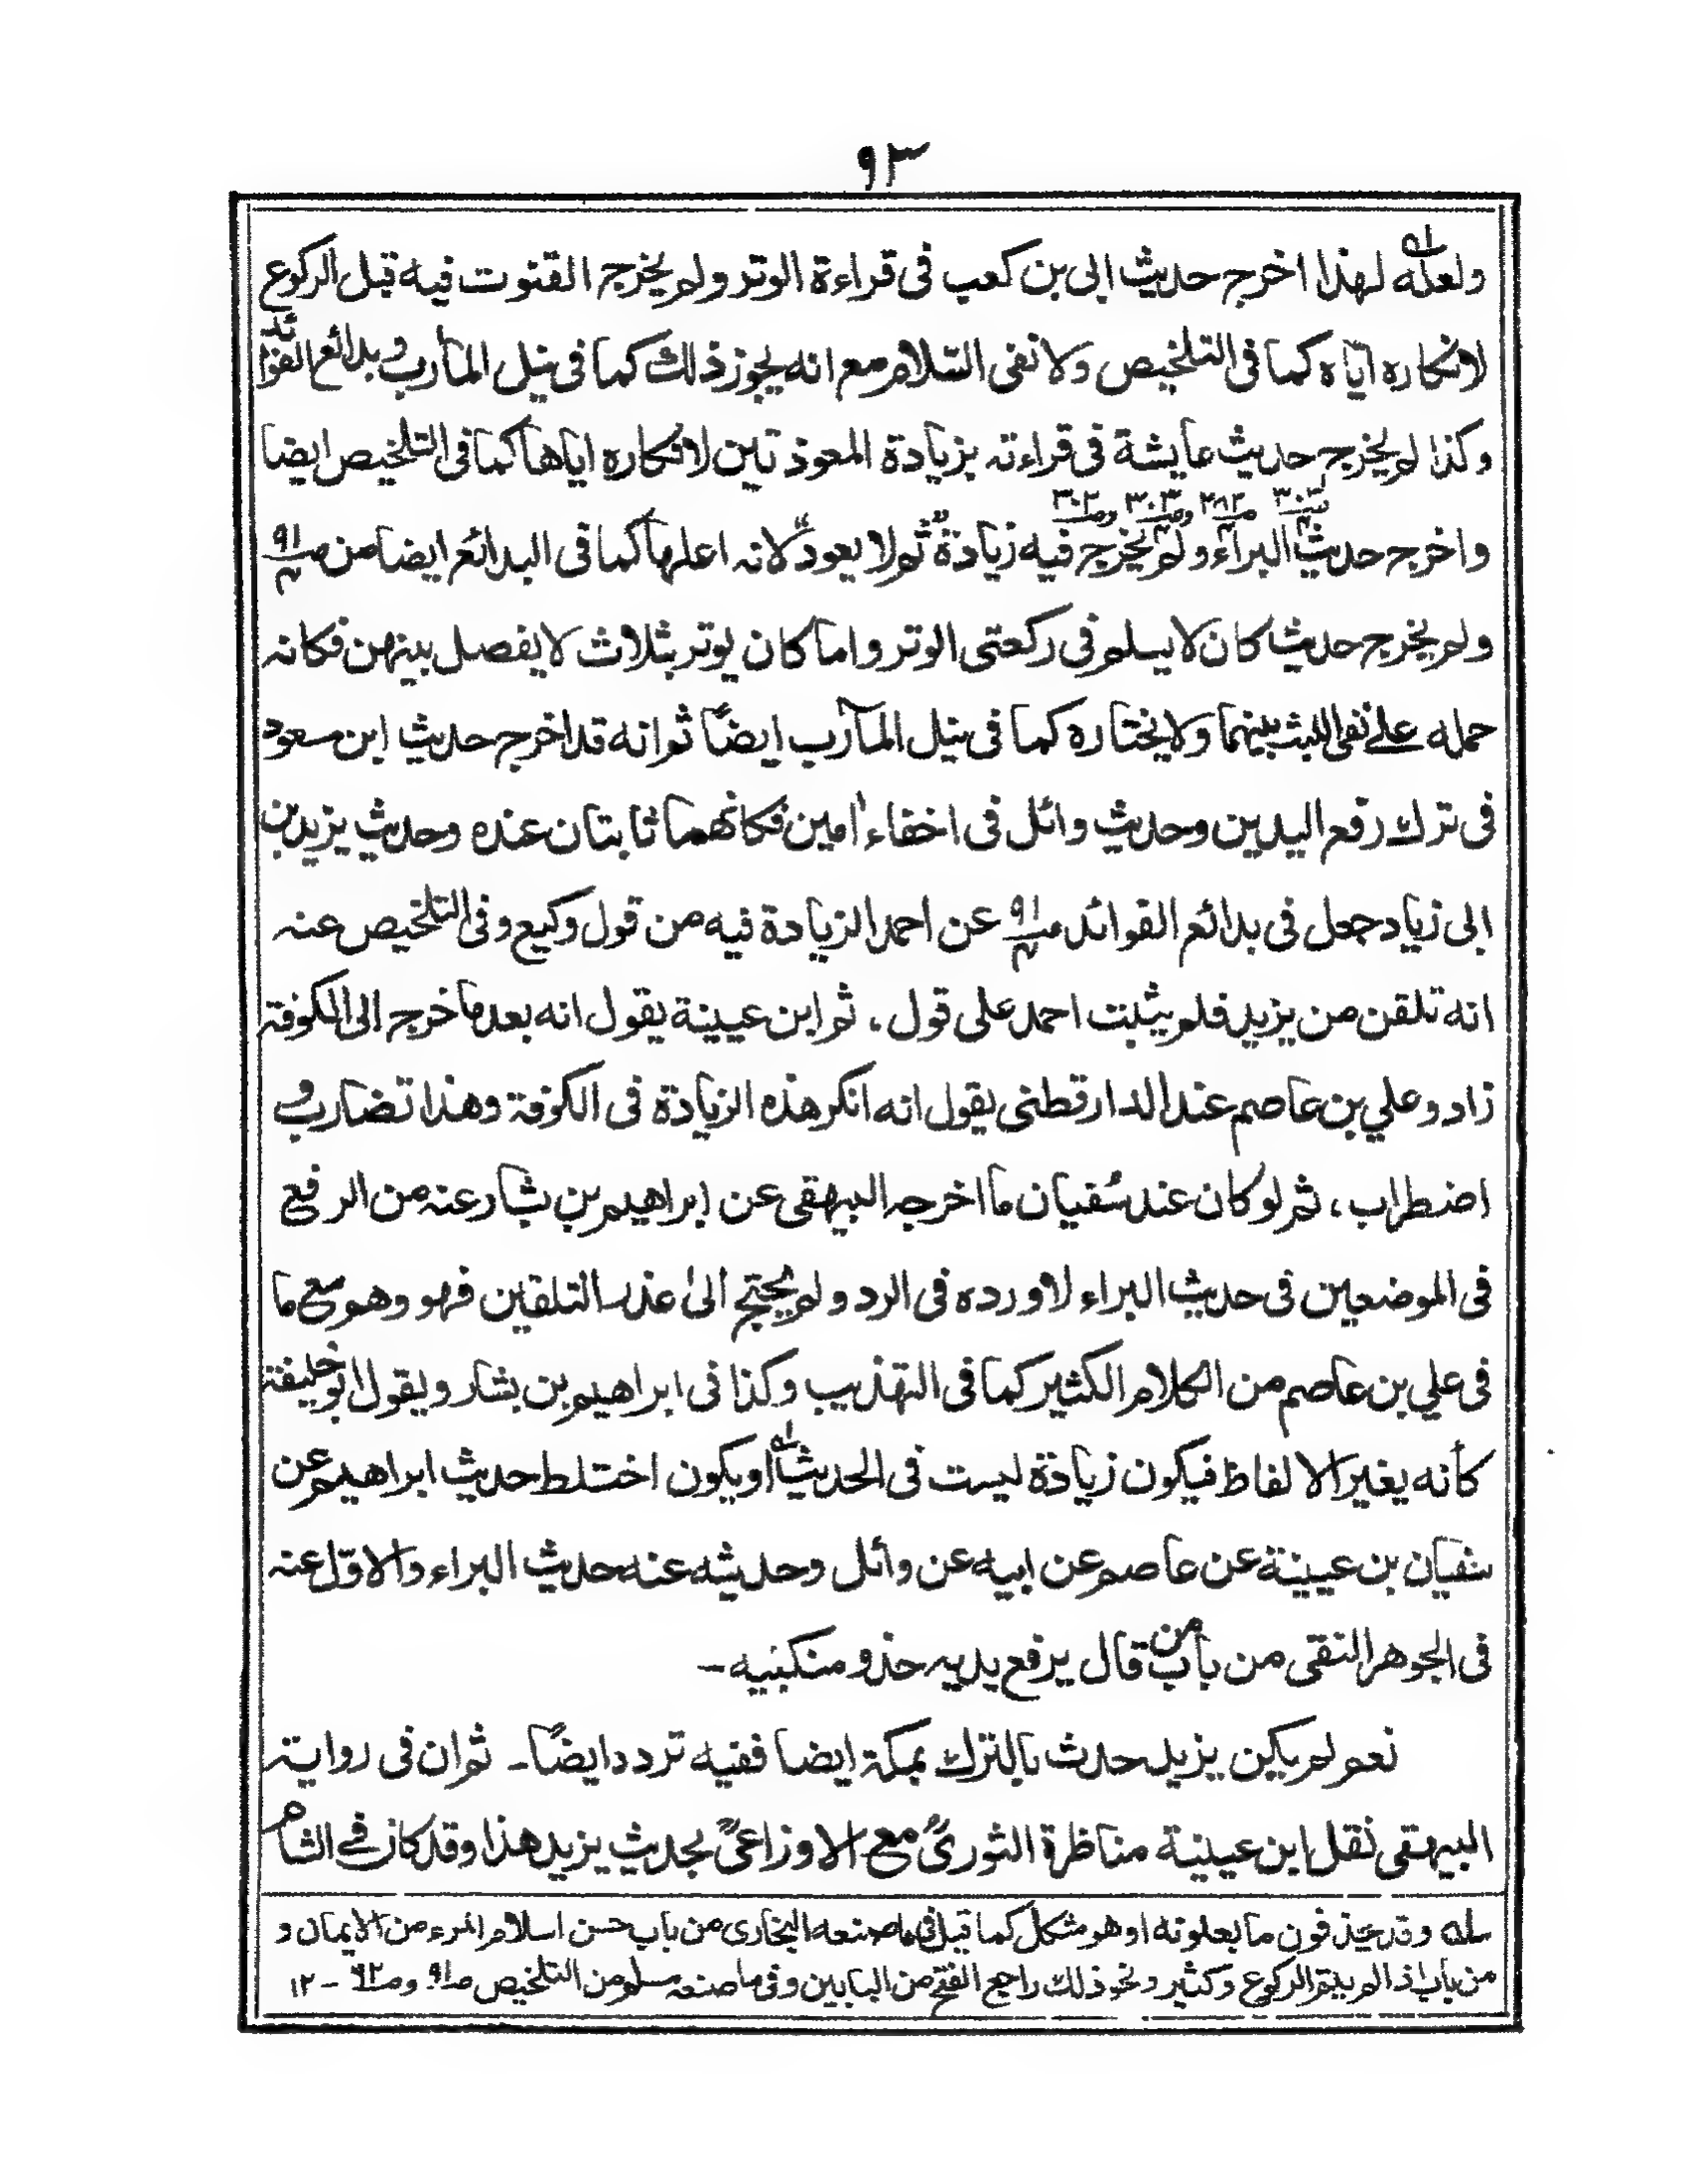 ٩٣
ولعله لهذا اخرج حديث ابى بن كعب فى قراءة الوتر ولم يخرج القنوت فيه قبل الركوع
لانكاره اياه كما فى التلخيص ولا نفى السلام مع انه يجوز ذلك كما فى نيل المآرب و بدائع الفوائد
وكذا لم يخرج حديث عايشة فى قراءته بزيادة المعوذتين لانكاره اياها كما فى التلخيص ايضا
واخرج حديث البراء ولم يخرج فيه زيادة ثم لا يعود لانه اعلها كما فى البدائع ايضا من صـ٩١
ولم يخرج حديث كان لا يسلم فى ركعتى الوتر واما كان يوتر بثلاث لا يفصل بينهن فكانه
حمله على نفى اللبث بينهما ولا يختاره كما فى نيل المآرب ايضاً ثم انه قد اخرج حديث ابن مسعود
فى ترك رفع اليدين وحديث وائل فى اخفاء اٰمين فكانهما ثابتان عنده وحديث يزيد بن
ابى زياد جعل فى بدائع الفوائد صـ٩١ عن احمد الزيادة فيه من قول وكيع وفى التلخيص عنه
انه تلقن من يزيد فلم يثبت احمد على قول ، ثم ابن عيينة يقول انه بعد ما خرج الى الكوفة
زاد و علي بن عاصم عند الدارقطنى يقول انه انكر هذه الزيادة فى الكوفة وهذا تضارب و
اضطراب ، ثم لو كان عند سُفيان ما اخرجه البيهقى عن ابراهيم بن بشار عنه من الرفع
فى الموضعين فى حديث البراء لاورده فى الرد ولم يحتج الىٰ عذر التلقين فهو وهم مع ما
فى علي بن عاصم من الكلام الكثير كما فى التهذيب وكذا فى ابراهيم بن بشار ويقول ابو خليفة
كأنه يغير الالفاظ فيكون زيادة ليست فى الحديث او يكون اختلط حديث ابراهيم عن
سفيان بن عيينة عن عاصم عن ابيه عن وائل وحديثه عنه حديث البراء والاول عنه
فى الجوهر النقى من باب من قال يرفع يديه حذو منكبيه ـ
نعم لم يكن يزيد حدث بالترك بمكة ايضا ففيه تردد ايضاً ـ ثم ان فى رواية
البيهقى نقل ابن عيينة مناظرة الثورىؒ مع الاوزاعىؒ بحديث يزيد هذا وقد كان فى الشام
سله وقد يحذفون ما يعلونه او هو مشكل كما قيل فى ما صنعه البخارى من باب حسن اسلام المرء من الايمان و
من باب اذا لم يتم الركوع وكثير ونحو ذلك راجع الفتح من البابين وفى ما صنعه مسلم من التلخيص صـ٩١ وصـ٩٢ ـ ١٢